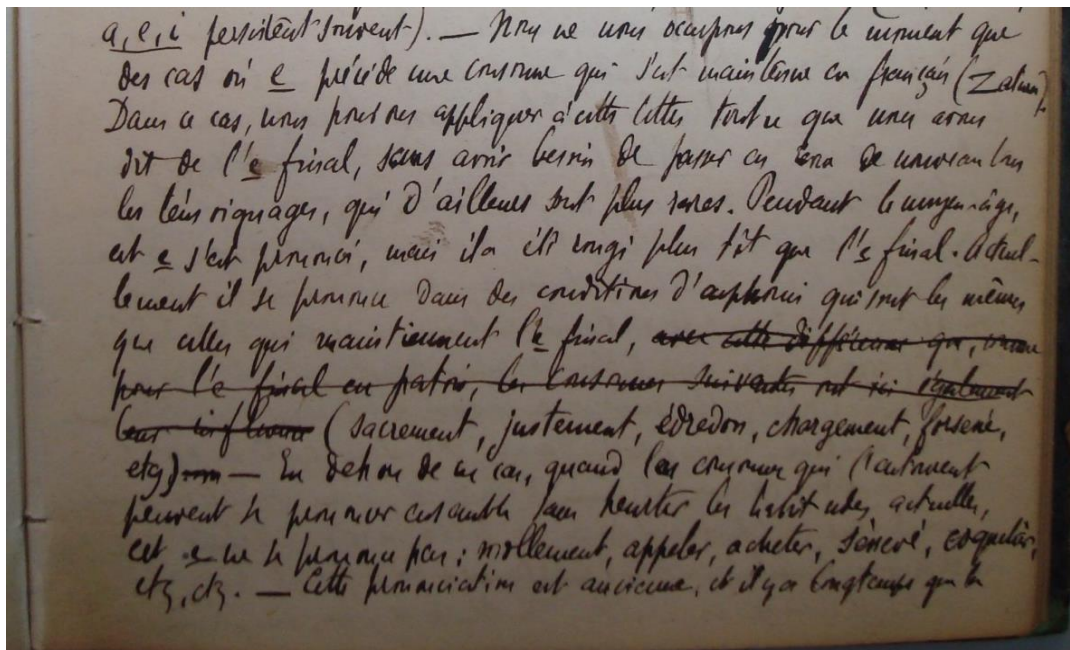 a, e, i persistent souvent). — Nous ne nous occupons pour le moment que
des cas où e précède une consonne qui s'est maintenue en français
Dans ce cas, nous pouvons appliquer à cette lettre tout ce que nous avons
dit de l'e final, sans avoir besoin de passer en de nouveau tous
les témoignages, qui d'ailleurs sont plus rares. Pendant le moyen-âge,
cet e s'est prononcé, mais il a été plus tôt que l'e final. Actuel-
lement il se prononce dans des conditions d'euphonie qui sont les mêmes
que celles qui maintiennent l'e final, avec cette différence que, comme
pour l'e final en patois, les consonnes suivantes ont ici également
leur influence (sacrement, justement, édredon, chargement, forsené,
etc) — En dehors de ces cas, quand les consonnes qui l'entourent
peuvent se prononcer ensemble sans heurter les habitudes actuelles,
cet e ne se prononce pas : mollement, appeler, acheter,
etc, etc. — Cette prononciation est ancienne, et il y a longtemps que